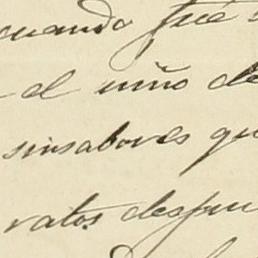 cuando fué
el niño de
sinsabores qu
ratos despu